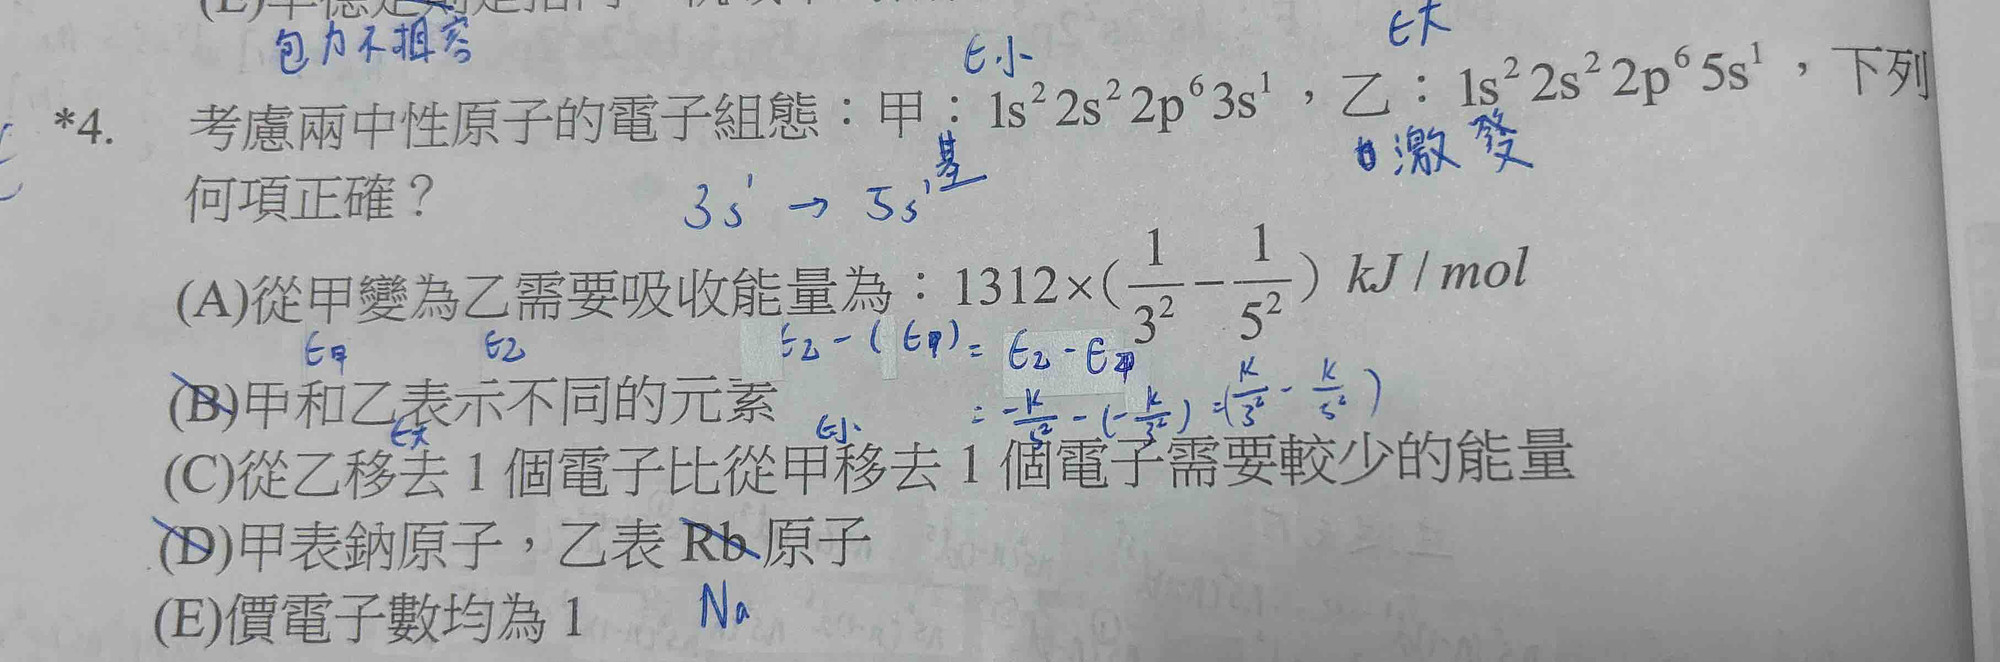 包力不相容
E小
E大
*4. 考慮兩中性原子的電子組態：甲：1s² 2s² 2p⁶ 3s¹，乙：1s² 2s² 2p⁶ 5s¹，下列
基
激發
何項正確？
3s¹ → 5s¹
(A)從甲變為乙需要吸收能量為：1312×(1/3² − 1/5²) kJ / mol
E甲
E乙
E乙 - (E甲) = E乙 - E甲
(B)甲和乙表示不同的元素
= -K/5² - (-K/3²) = (K/3² - K/5²)
E大
E小
(C)從乙移去 1 個電子比從甲移去 1 個電子需要較少的能量
(D)甲表鈉原子，乙表 Rb 原子
(E)價電子數均為 1
Na